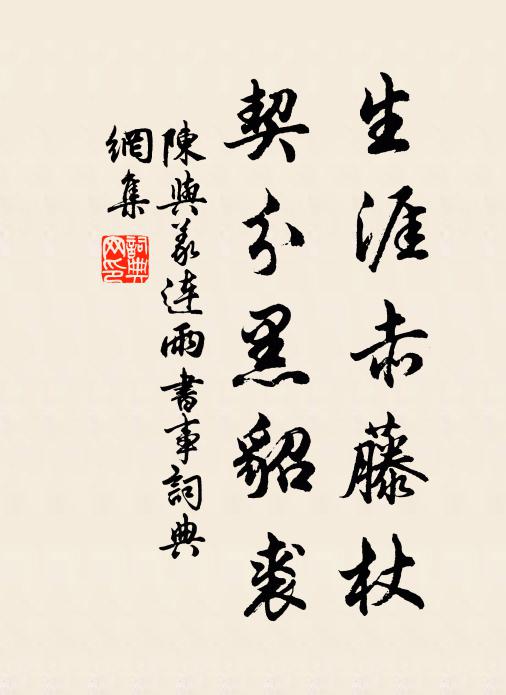 生涯赤藤杖
契分黑貂裘
陳與義連雨書事詞典
網集
詞典
网印